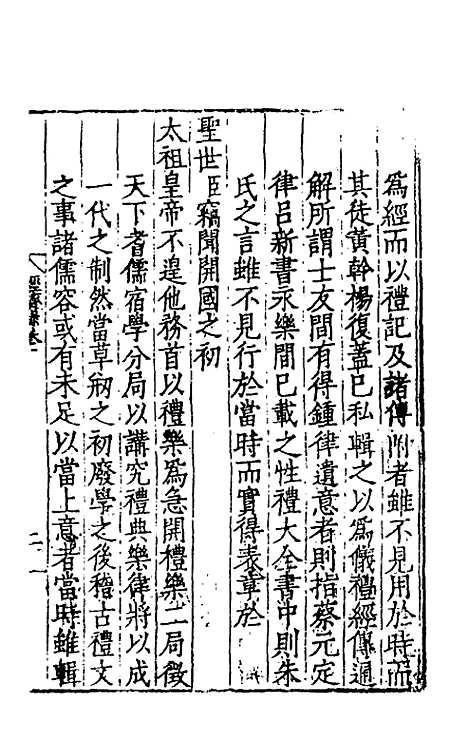 為經而以禮記及諸傳附者雖不見用於時而
其徒黃幹楊復蓋已私輯之以為儀禮經傳通
解所謂士友間有得鍾律遺意者則指蔡元定
律呂新書永樂間已載之性禮大全書中則朱
氏之言雖不見行於當時而實得表章於
聖世臣竊聞開國之初
太祖皇帝不遑他務首以禮樂為急開禮樂二局徵
天下耆儒宿學分局以講究禮典樂律將以成
一代之制然當草剏之初廢學之後稽古禮文
之事諸儒容或有未足以當上意者當時雖輯